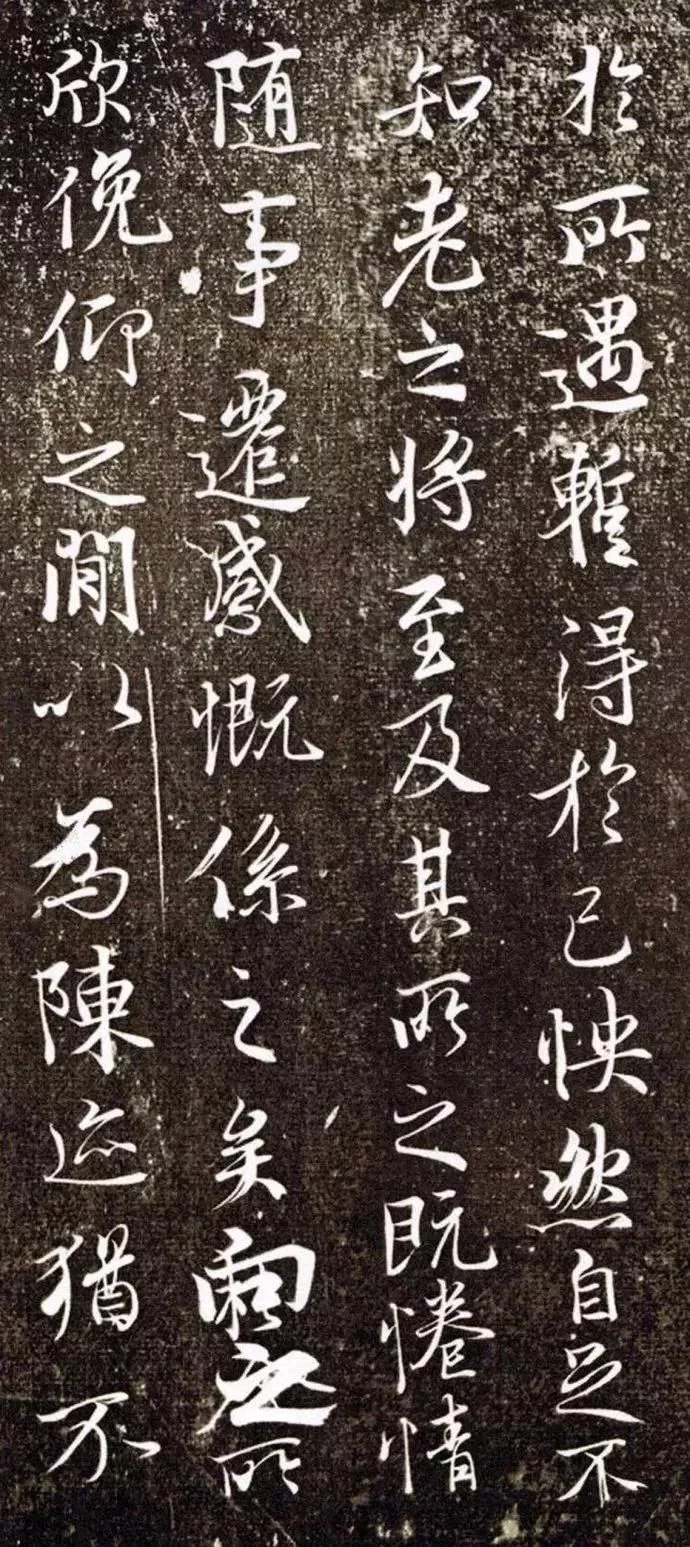 於所遇暫得於己怏然自足不
知老之將至及其所之既惓情
随事遷感慨係之矣向之所
欣俛仰之閒以為陳迹猶不